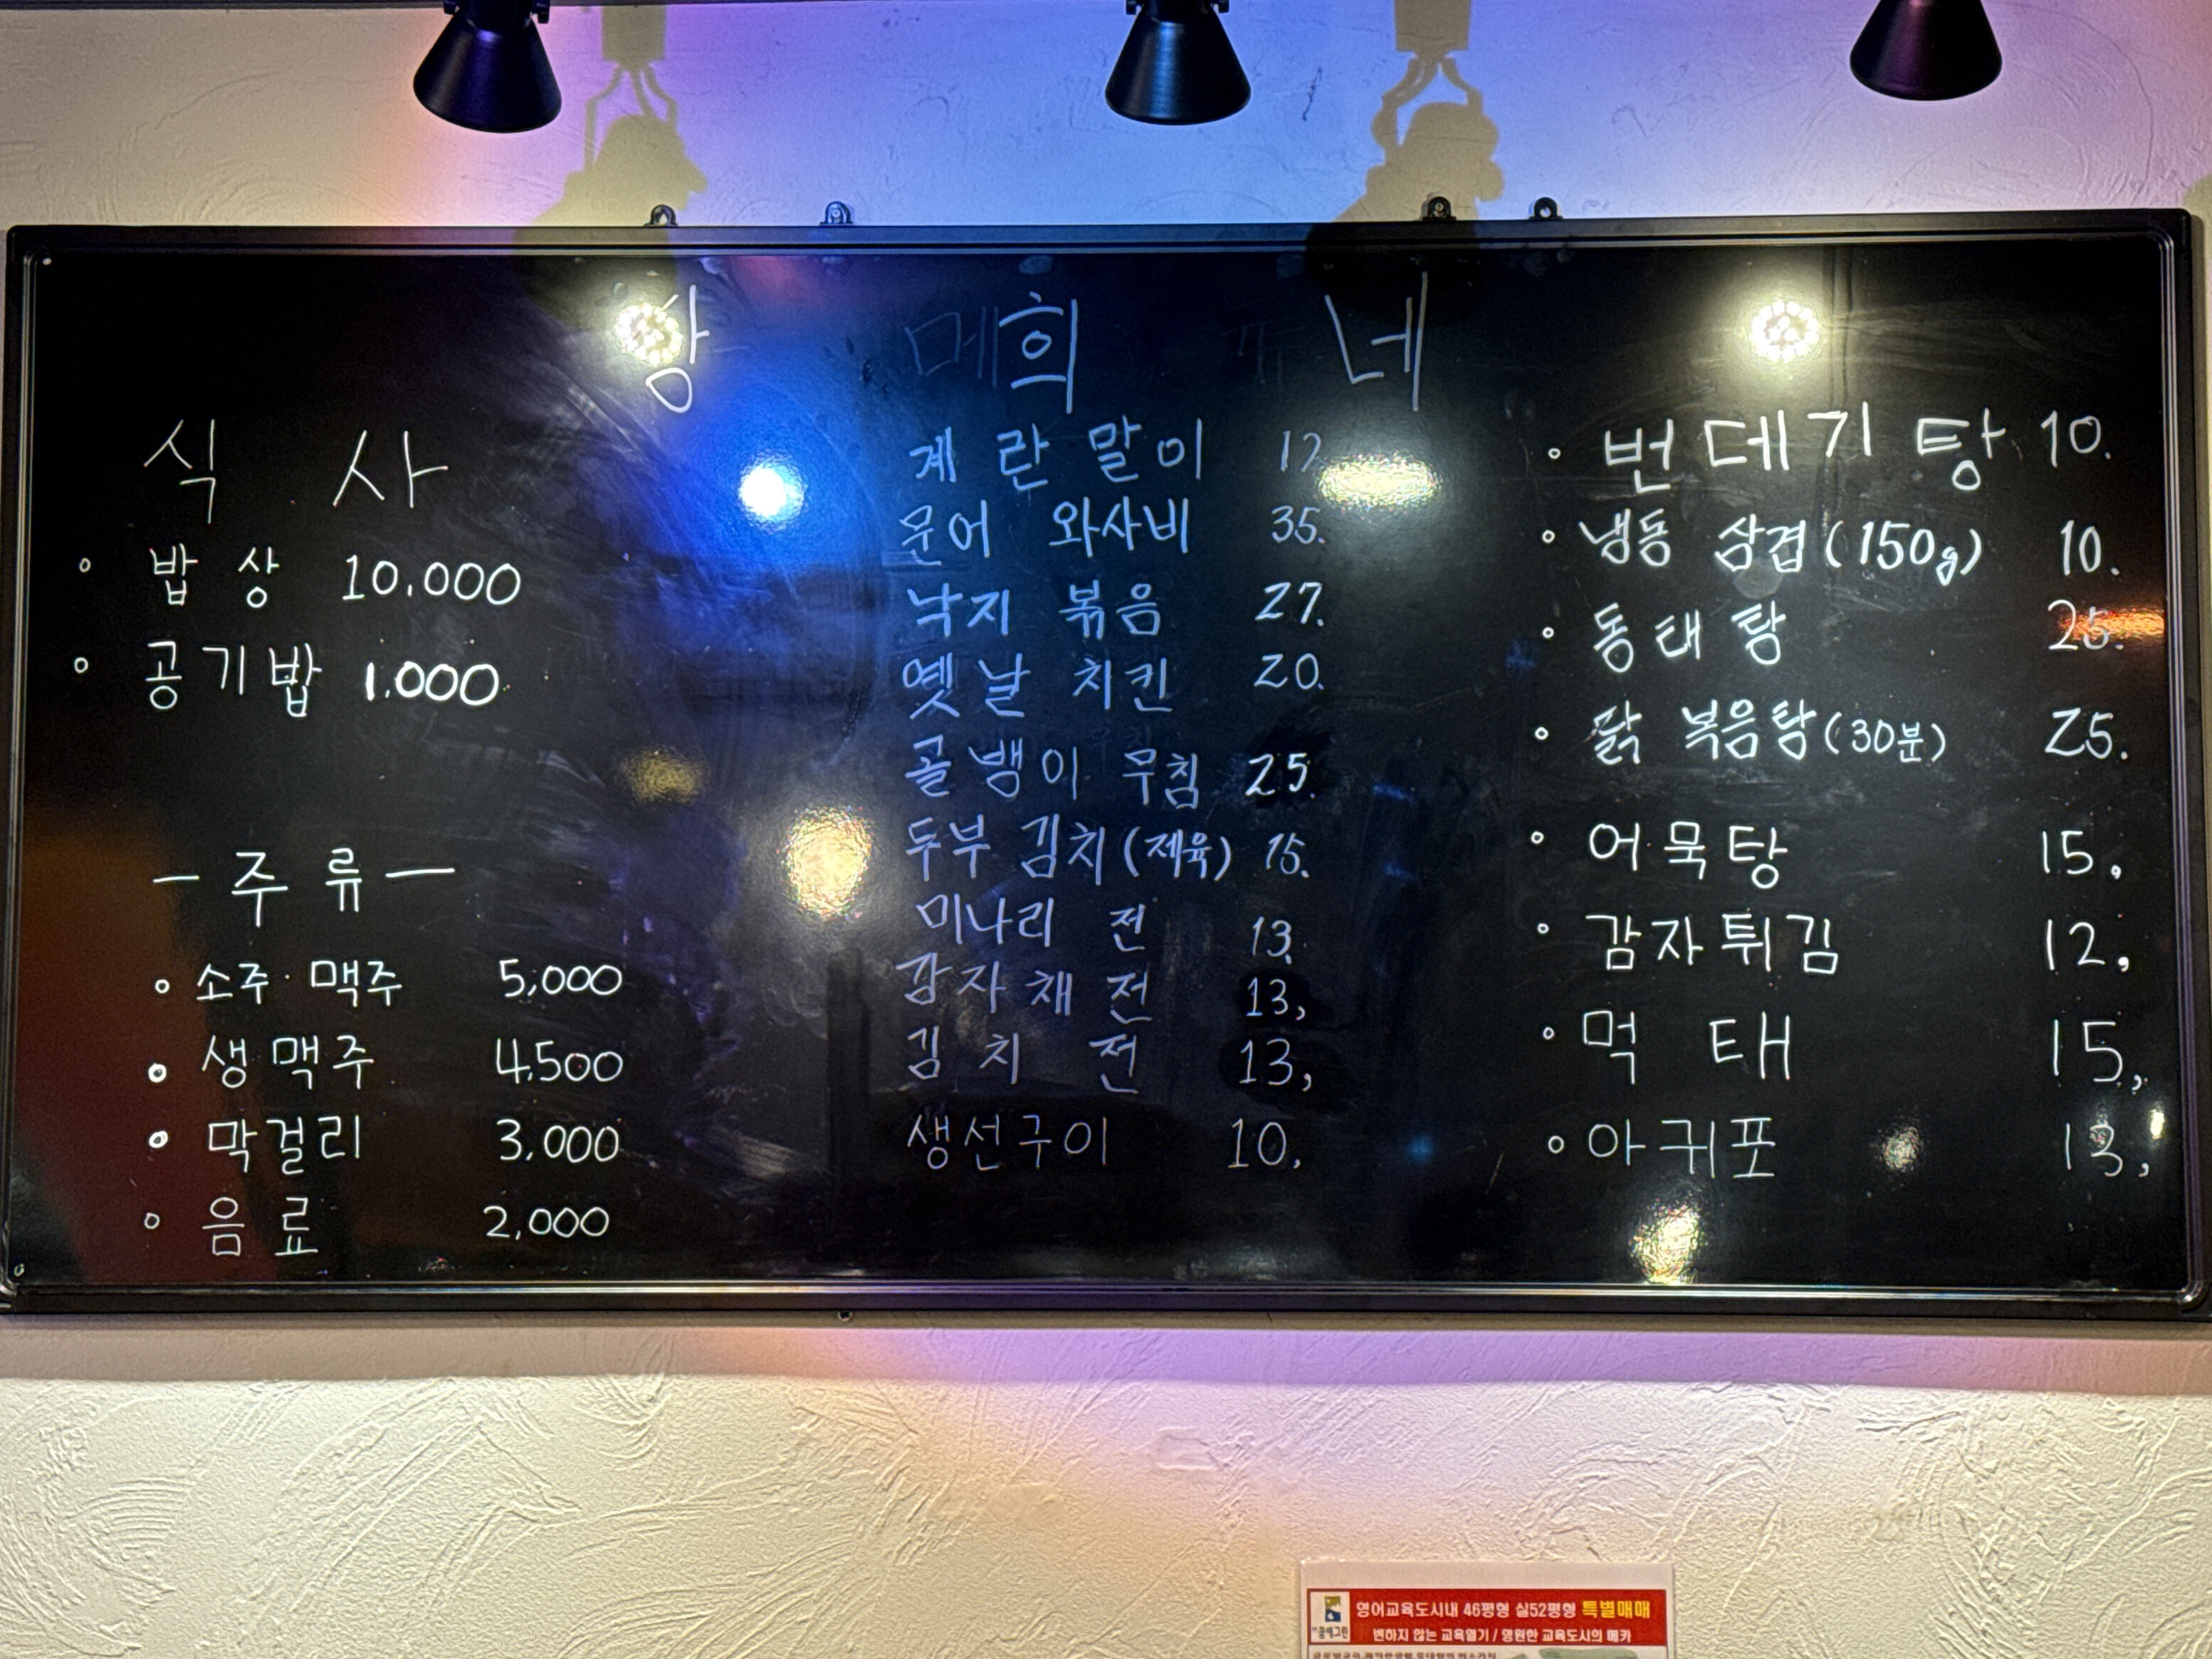 희 네
식 사
• 밥 상 10,000
• 공기밥 1,000
- 주 류 -
• 소주 · 맥주 5,000
• 생맥주 4,500
• 막걸리 3,000
• 음료 2,000
계란말이 12
문어 와사비 35.
낙지 볶음 27.
옛날 치킨 20.
골뱅이 무침 25.
두부 김치(제육) 15.
미나리 전 13.
감자채 전 13,
김치 전 13,
생선구이 10,
• 번데기탕 10.
• 냉동 삼겹(150g) 10.
• 동태탕 25.
• 닭 볶음탕(30분) 25.
• 어묵탕 15,
• 감자튀김 12,
• 먹태 15,
• 아귀포 13,
영어교육도시내 46평형 실52평형 특별매매
변하지 않는 교육열기 / 영원한 교육도시의 메카